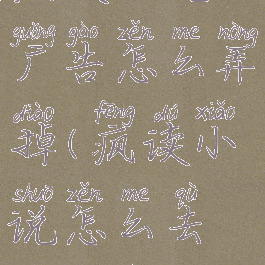 guǎng gào zěn me nòng
广告怎么弄
diào fēng dú xiǎo
掉(疯读小
shuō zěn me qù
说怎么去